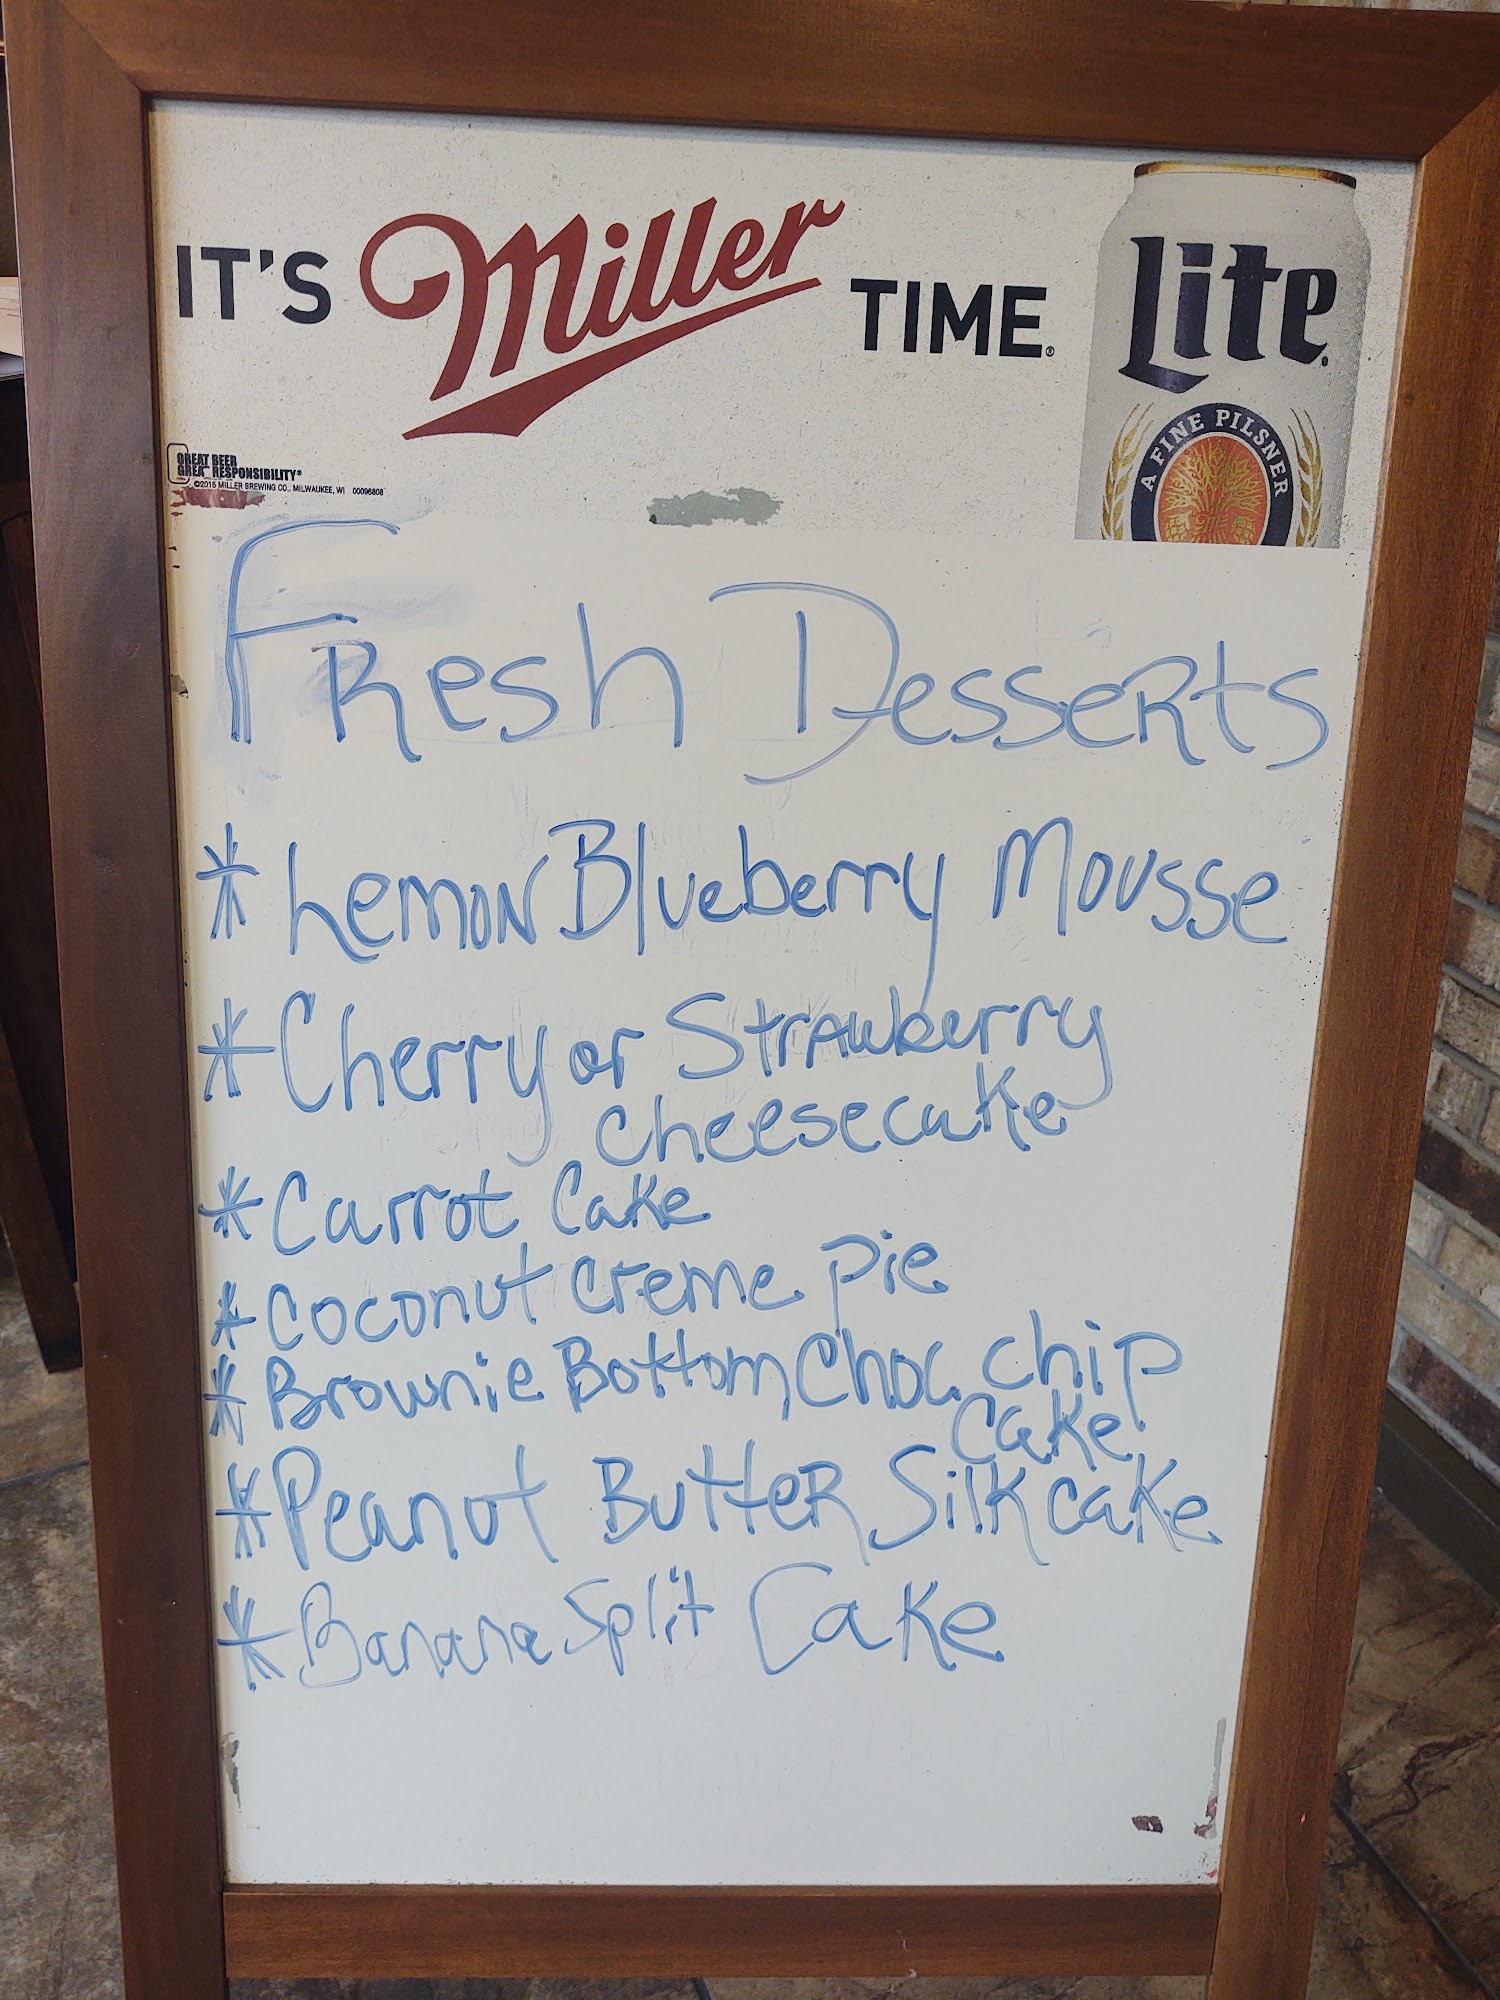 IT'S Miller TIME.®
Lite
A FINE PILSNER
GREAT BEER
GREAT RESPONSIBILITY®
©2015 MILLER BREWING CO., MILWAUKEE, WI 00096808
Fresh Desserts
* Lemon Blueberry Mousse
* Cherry or Strawberry
cheesecake
* Carrot Cake
* Coconut Creme pie
* Brownie Bottom Choc. chip
cake
* Peanut Butter Silk cake
* Banana Split Cake